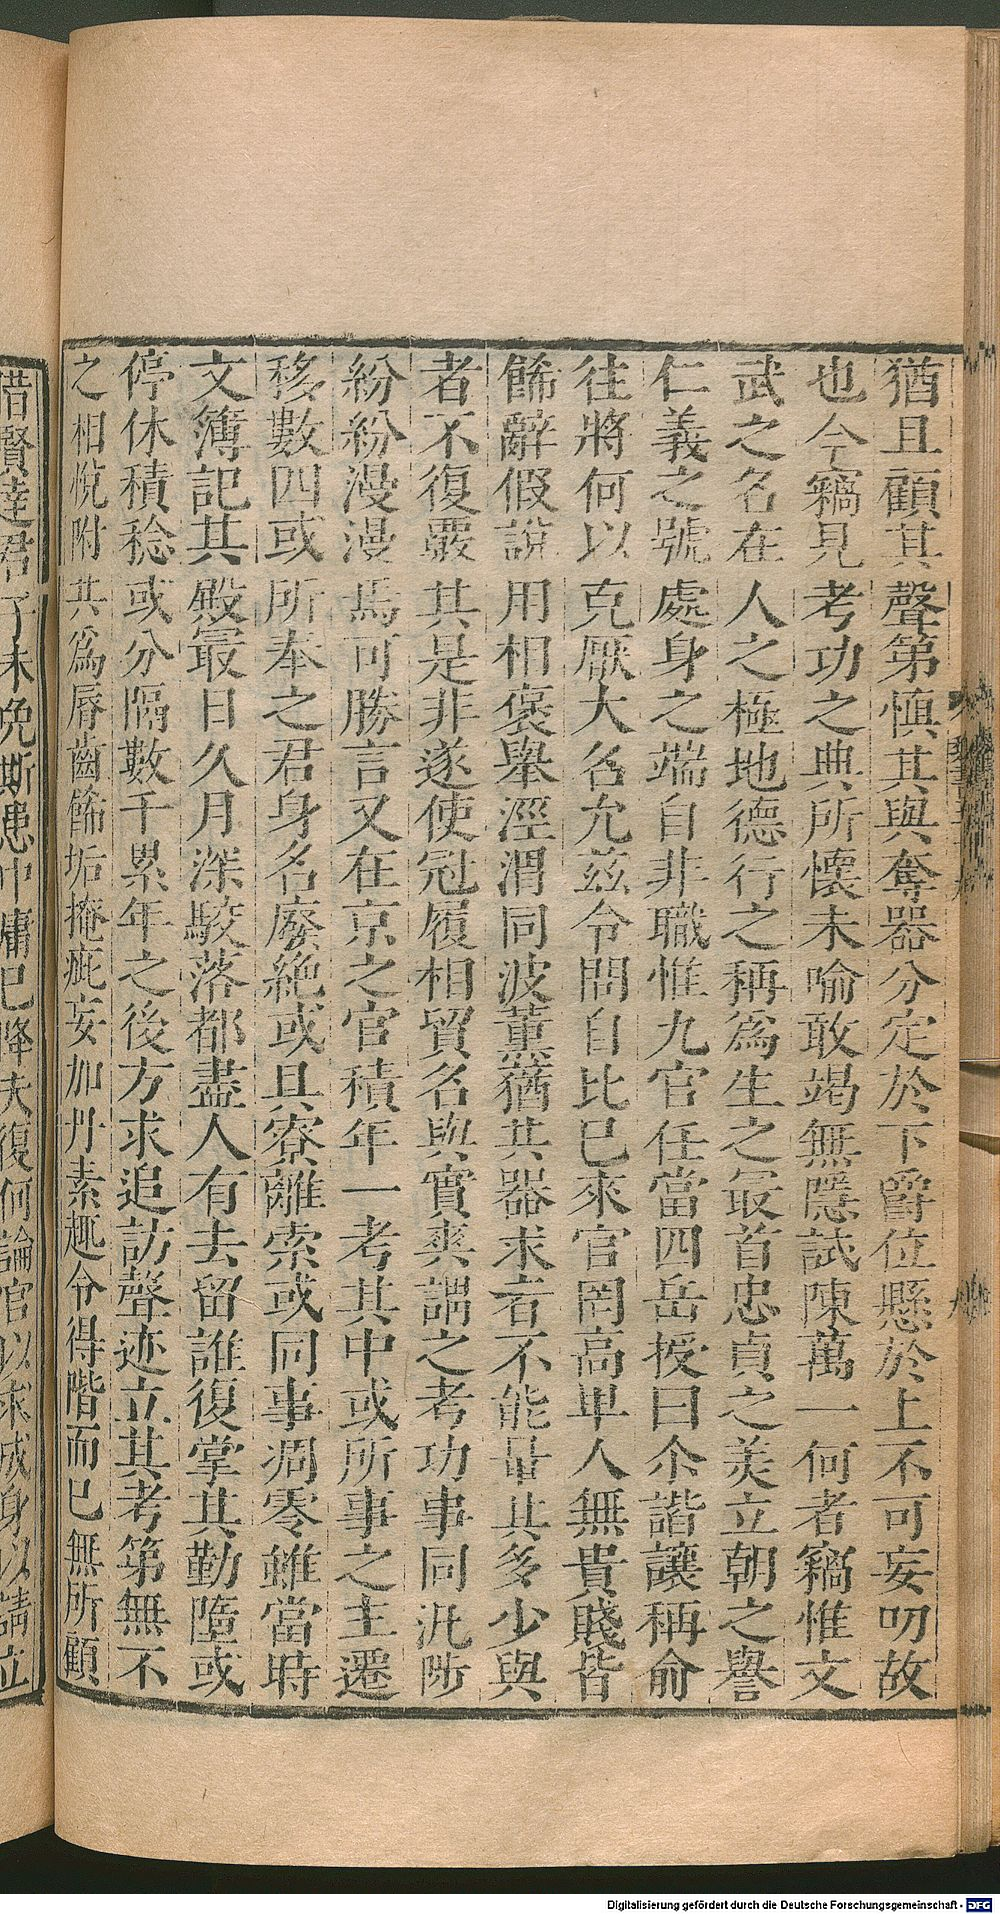 猶且顧其聲第慎其與奪器分定於下爵位懸於上不可妄叨故
也今竊見考功之典所懷未喻敢竭無隱試陳萬一何者竊惟文
武之名在人之極地德行之稱爲生之冣首忠貞之美立朝之譽
仁義之號處身之端自非職惟九官任當四岳授曰尒諧讓稱俞
往將何以克厭大名允茲令問自比已來官罔高卑人無貴賤皆
餙辭假說用相褒舉涇渭同波薰蕕共器求者不能量其多少與
者不復嚴其是非遂使冠履相貿名與實爽謂之考功事同汎陟
紛紛漫漫焉可勝言又在京之官積年一考其中或所事之主遷
移數四或所奉之君身名廢絶或具寮離索或同事凋零雖當時
文簿記其殿冣日久月深駮落都盡人有去留誰復掌其勤墮或
停休積稔或分隔數千累年之後方求追訪聲迹立其考第無不
之相悅附共爲脣齒餙垢掩疵妄加丹素趣令得階而已無所顧
惜賢達君子未免斯患中庸已降夫復何論官以求成身以請立
Digitalisierung gefördert durch die Deutsche Forschungsgemeinschaft - DFG